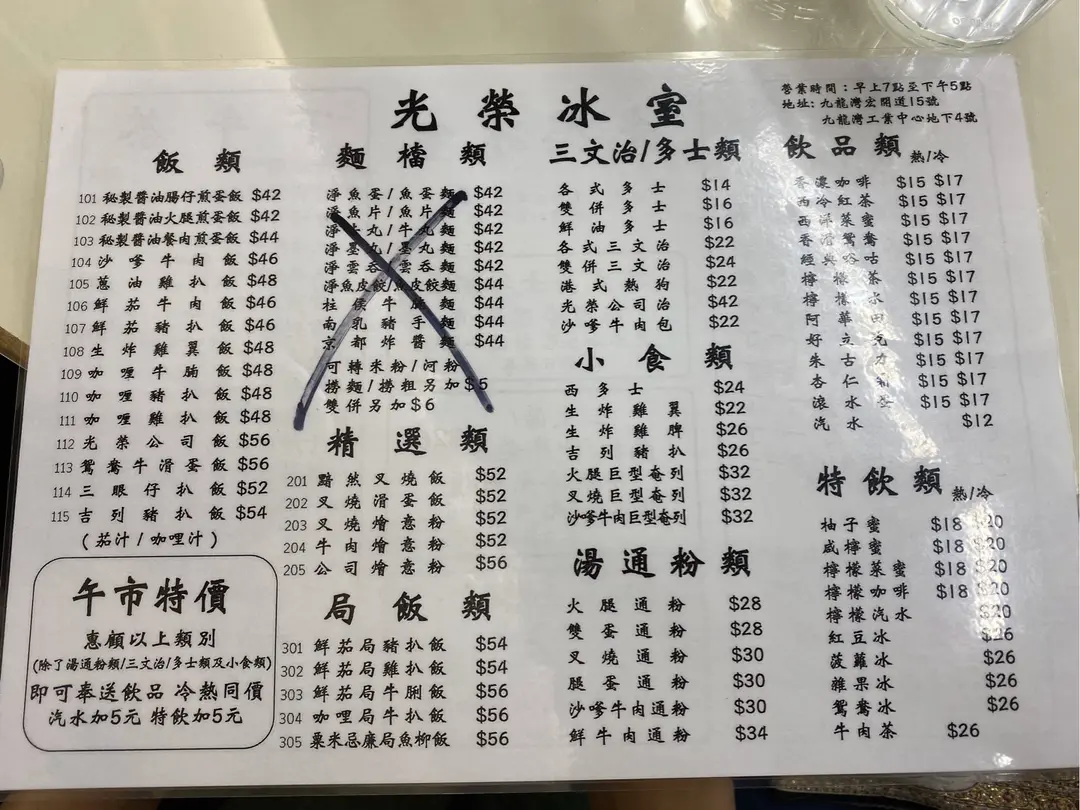 光榮冰室
營業時間：早上7點至下午5點
地址: 九龍灣宏開道15號
九龍灣工業中心地下4號
飯類
101 秘製醬油腸仔煎蛋飯 $42
102 秘製醬油火腿煎蛋飯 $42
103 秘製醬油餐肉煎蛋飯 $44
104 沙嗲牛肉飯 $46
105 蔥油雞扒飯 $48
106 鮮茄牛肉飯 $46
107 鮮茄豬扒飯 $46
108 生炸雞翼飯 $48
109 咖喱牛腩飯 $48
110 咖喱豬扒飯 $48
111 咖喱雞扒飯 $48
112 光榮公司飯 $56
113 鴛鴦牛滑蛋飯 $56
114 三眼仔扒飯 $52
115 吉列豬扒飯 $54
(茄汁/咖哩汁)
午市特價
惠顧以上類別
(除了湯通粉類/三文治/多士類及小食類)
即可奉送飲品 冷熱同價
汽水加5元 特飲加5元
麵檔類
淨魚蛋/魚蛋麵 $42
淨魚片/魚片麵 $42
淨牛丸/牛丸麵 $42
淨墨丸/墨丸麵 $42
淨雲吞/雲吞麵 $42
淨魚皮餃/魚皮餃麵 $44
柱侯牛腩麵 $44
南乳豬手麵 $44
京都炸醬麵 $44
可轉米粉/河粉
撈麵/撈粗另加$5
雙併另加$6
精選類
201 黯然叉燒飯 $52
202 叉燒滑蛋飯 $52
203 叉燒燴意粉 $52
204 牛肉燴意粉 $52
205 公司燴意粉 $56
局飯類
301 鮮茄局豬扒飯 $54
302 鮮茄局雞扒飯 $54
303 鮮茄局牛脷飯 $56
304 咖哩局牛扒飯 $56
305 粟米忌廉局魚柳飯 $56
三文治/多士類
各式多士 $14
雙併多士 $16
鮮油多士 $16
各式三文治 $22
雙併三文治 $24
港式熱狗 $22
光榮公司治 $42
沙嗲牛肉包 $22
小食類
西多士 $24
生炸雞翼 $22
生炸雞脾 $26
吉列豬扒 $26
火腿巨型奄列 $32
叉燒巨型奄列 $32
沙嗲牛肉巨型奄列 $32
湯通粉類
火腿通粉 $28
雙蛋通粉 $28
叉燒通粉 $30
腿蛋通粉 $30
沙嗲牛肉通粉 $30
鮮牛肉通粉 $34
飲品類 熱/冷
香濃咖啡 $15 $17
西冷紅茶 $15 $17
西洋菜蜜 $15 $17
香滑鴛鴦 $15 $17
經典唂咕 $15 $17
檸檬茶 $15 $17
檸檬水 $15 $17
阿華田 $15 $17
好立克 $15 $17
朱古力 $15 $17
杏仁霜 $15 $17
滾水蛋 $15 $17
汽水 $12
特飲類 熱/冷
柚子蜜 $18 $20
咸檸蜜 $18 $20
檸檬菜蜜 $18 $20
檸檬咖啡 $18 $20
檸檬汽水 $20
紅豆冰 $26
菠蘿冰 $26
雜果冰 $26
鴛鴦冰 $26
牛肉茶 $26